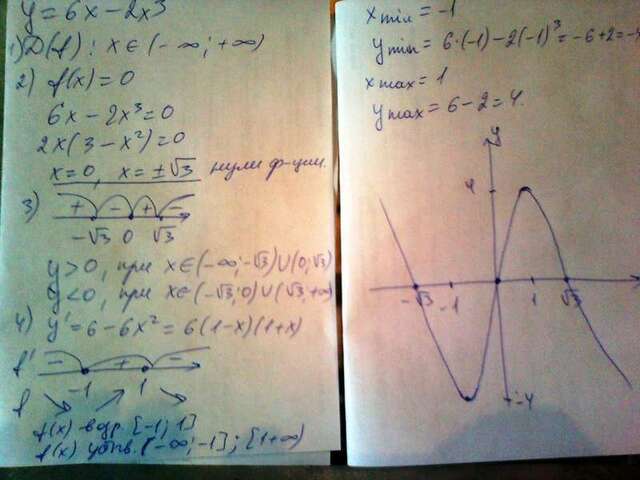 y = 6x - 2x³
1) D(f): x ∈ (-∞; +∞)
2) f(x) = 0
6x - 2x³ = 0
2x(3 - x²) = 0
x = 0, x = ±√3 нули ф-ции.
3) + - + -
-√3 0 √3
y > 0, при x ∈ (-∞; -√3) ∪ (0; √3)
y < 0, при x ∈ (-√3; 0) ∪ (√3; +∞)
4) y' = 6 - 6x² = 6(1-x)(1+x)
f' - + -
-1 1
f ↘ ↗ ↘
f(x) возр. [-1; 1]
f(x) убыв. (-∞; -1]; [1+∞)
x min = -1
y min = 6·(-1) - 2(-1)³ = -6+2 = -4
x max = 1
y max = 6 - 2 = 4.
y
4
-√3 -1 1 √3
-4